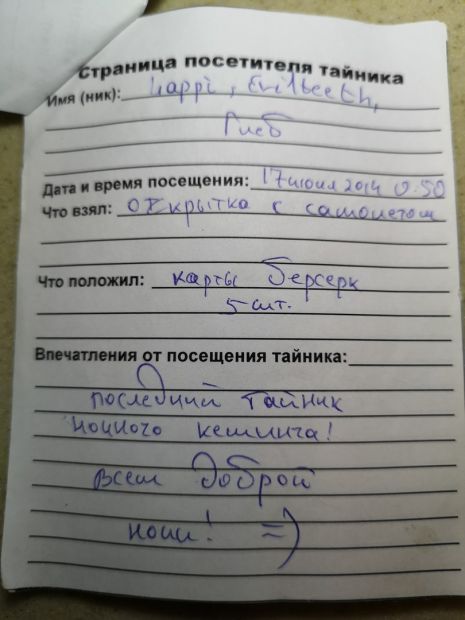 Страница посетителя тайника
Имя (ник): Lappi, Evilbeeth,
Глеб
Дата и время посещения: 17 июля 2014 0:50
Что взял: открытка с самолетом
Что положил: карты берсерк
5 шт.
Впечатления от посещения тайника:
последний тайник
ночного кешинга!
всем доброй
ночи! =)